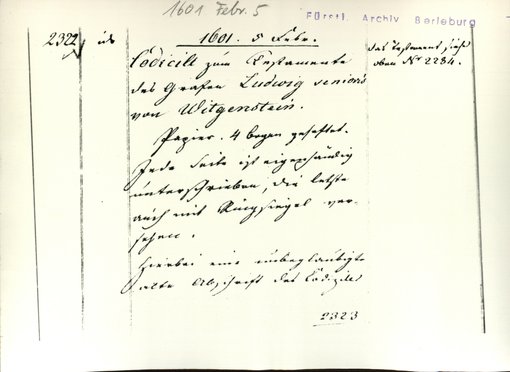 1601 Febr. 5
Fürstl. Archiv Berleburg
2322
id
1601. 5 Febr.
Codicill zum Testamente
des Grafen Ludwig senioris
von Witgenstein.
das Testament siehe
oben No 2284.
Papier. 4 bogen geheftet.
Jede Seite ist eigenhändig
unterschrieben, die letzte
auch mit Ringsiegel ver-
sehen.
Hierbei eine unbeglaubigte
alte Abschrift des Codicills
2323